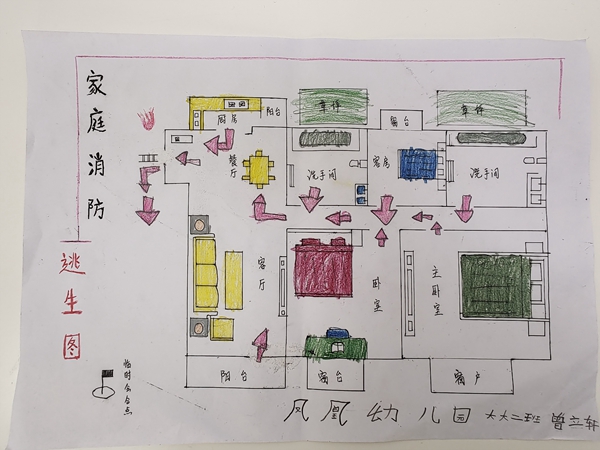 家庭消防
逃生图
厨房
阳台
草坪
窗台
草坪
餐厅
洗手间
客房
洗手间
客厅
卧室
主卧室
阳台
窗台
窗户
临时会合点
凤凰幼儿园 大大二班 曾立轩